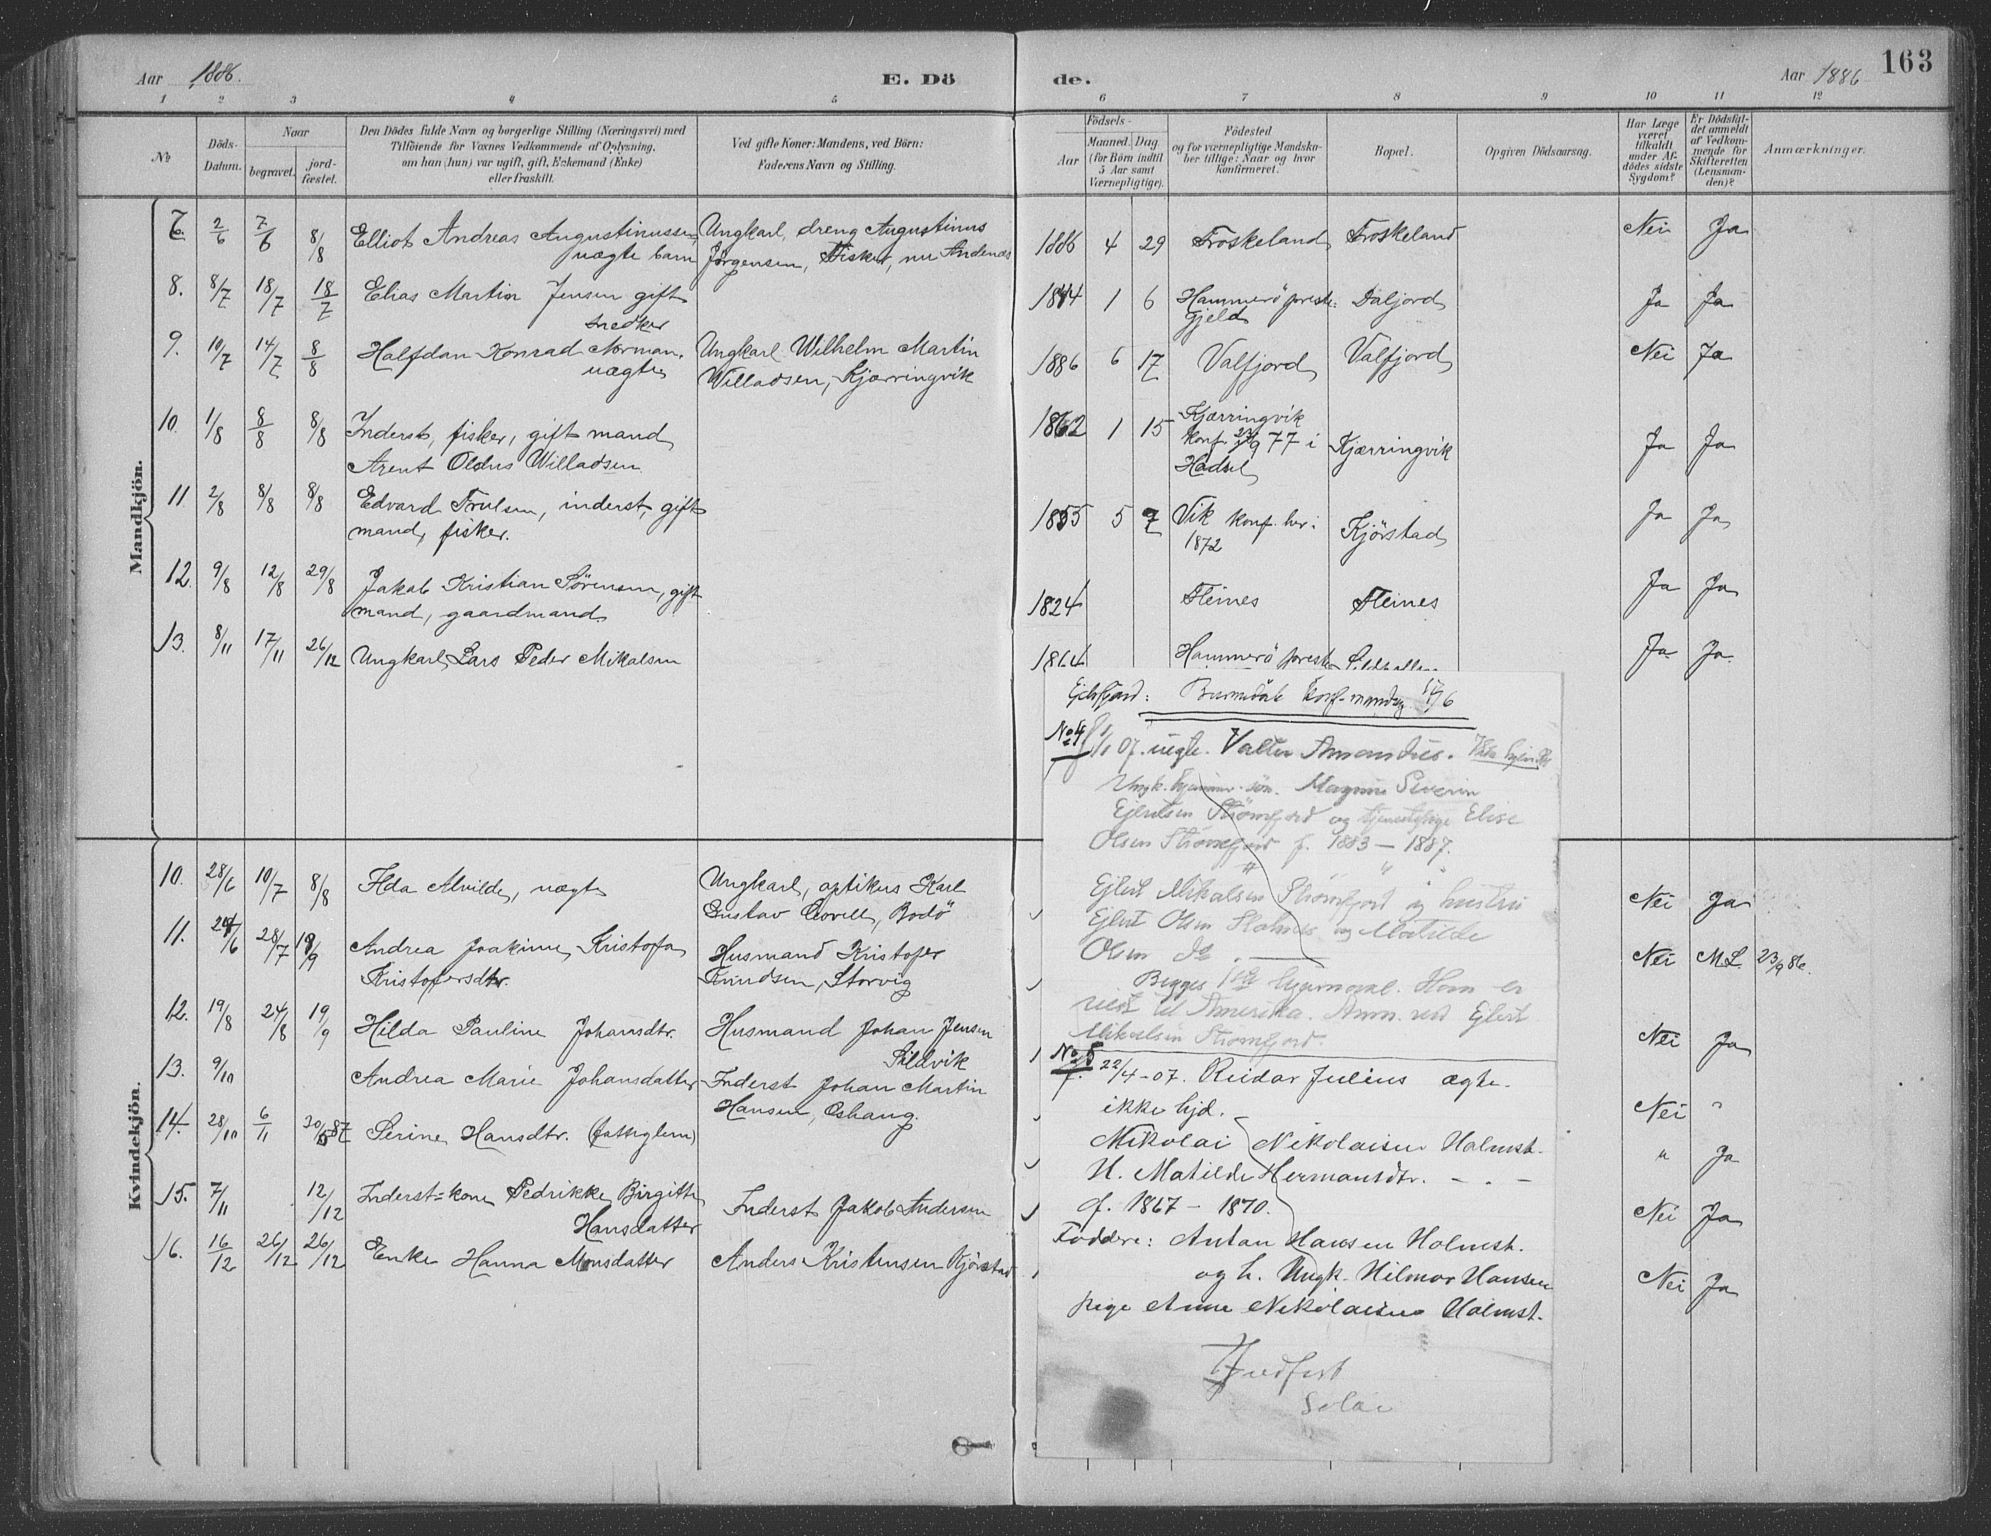 Aar 1886.
E. Döde.
Aar 1886
163
1 2 3 4 5 6 7 8 9 10 11 12
No
Döds-Datum.
Naar
begravet.
jordfæstet.
Den Dödes fulde Navn og borgerlige Stilling (Næringsvei) med
Tilföiende for Voxnes Vedkommende af Oplysning,
om han (hun) var ugift, gift, Enkemand (Enke)
eller fraskilt.
Ved gifte Koner: Mandens, ved Börn:
Faderens Navn og Stilling.
Födsels-
Aar
Maaned. Dag.
(for Börn indtil
5 Aar samt
Værnepligtige).
Födested
og for værnepligtige Mandska-
ber tillige: Naar og hvor
konfirmeret.
Bopæl.
Opgiven Dödsaarsag.
Har Læge
været
tilkaldt
under Af-
dödes sidste
Sygdom?
Er Dödsfal-
det anmeldt
af Vedkom-
mende for
Skifteretten
(Lensman-
den)?
Anmærkninger.
Mandkjön.
7. 2/6 7/6 8/8 Elliot Andreas Augustinussen, Ungkarl, dreng Augustinus 1886 4 29 Froskeland Froskeland Nei Ja
uægte barn Jørgensen, Fisker, nu Andenæs
8. 8/7 18/7 18/7 Elias Martin Jensen gift 1844 1 6 Hammerö preste- Daljord Ja Ja
snedker gjeld
9. 10/7 14/7 8/8 Halfdan Konrad Norman, Ungkarl Wilhelm Martin 1886 6 17 Valfjord Valfjord Nei Ja
uægte Willadsen, Kjærringvik
10. 1/8 8/8 8/8 Inderst, fisker, gift mand 1862 1 15 Kjærringvik
Arent Olaus Willadsen konf. 23/9 77 i Kjærringvik Ja Ja
Hadsel
11 2/8 8/8 8/8 Edvard Trulsen, inderst, gift 1855 5 Vik konf. her i Kjörstad Ja Ja
mand, fisker. 1872
12. 9/8 12/8 29/8 Jakob Kristian Sörensen, gift 1824 Fleines Fleines Ja Ja
mand, gaardmand
13. 8/11 17/11 26/12 Ungkarl Lars Peder Mikalsen 1864 Hammerö preste- Ja Ja
Kvindekjön.
10. 28/6 10/7 8/8 Alvilde, uægte Ungkarl, optikus Karl Nei Ja
Gustav Bodö
11. 28/7 Andrea Joakime Kristofa Husmand Kristofer Nei M L. 23/9 86.
Kristofersdtr. Knudsen, Storvig
12. 19/8 24/8 19/9 Hilda Pauline Johansdtr. Husmand Johan Jensen Nei Ja
Sildvik
13. 9/10 Andrea Marie Johansdatter Inderst Johan Martin Nei "
Hansen, Oshaug.
14. 28/10 6/11 30/5 87 Serine Hansdtr. (fattiglem) " Ja
15. 7/11 12/12 Inderst-kone Fedrikke Birgitte Inderst Jakob Andersen Nei Ja
Hansdatter
16. 16/12 26/12 26/12 Enke Hanna Monsdatter Anders Kristensen Kjörstad Nei Ja
konf-
No 4 07. uegte. Valter Amandus.
Magnus Severin
Ejlertsen Strömfjord og Elise
Olsen Strömfjord f. 1883 – 1887.
Ejlert Mikalsen Strömfjord og hustru
Ejlert Olsen og Matilde
Olsen do.
Begges 1ste Han er
reist til Amerika. Anm. ved Ejlert
Mikalsen Strömfjord.
No 5
f. 22/4 - 07. Reidar Julius ægte.
ikke hjd.
Mikolai Nikolaisen Holmst.
H. Matilde Hermansdtr. – . –
f. 1867 – 1870.
Faddere: Antan Hansen Holmst.
og h. Ungk. Hilmar Hansen
pige Anne Nikolaisen Holmst.